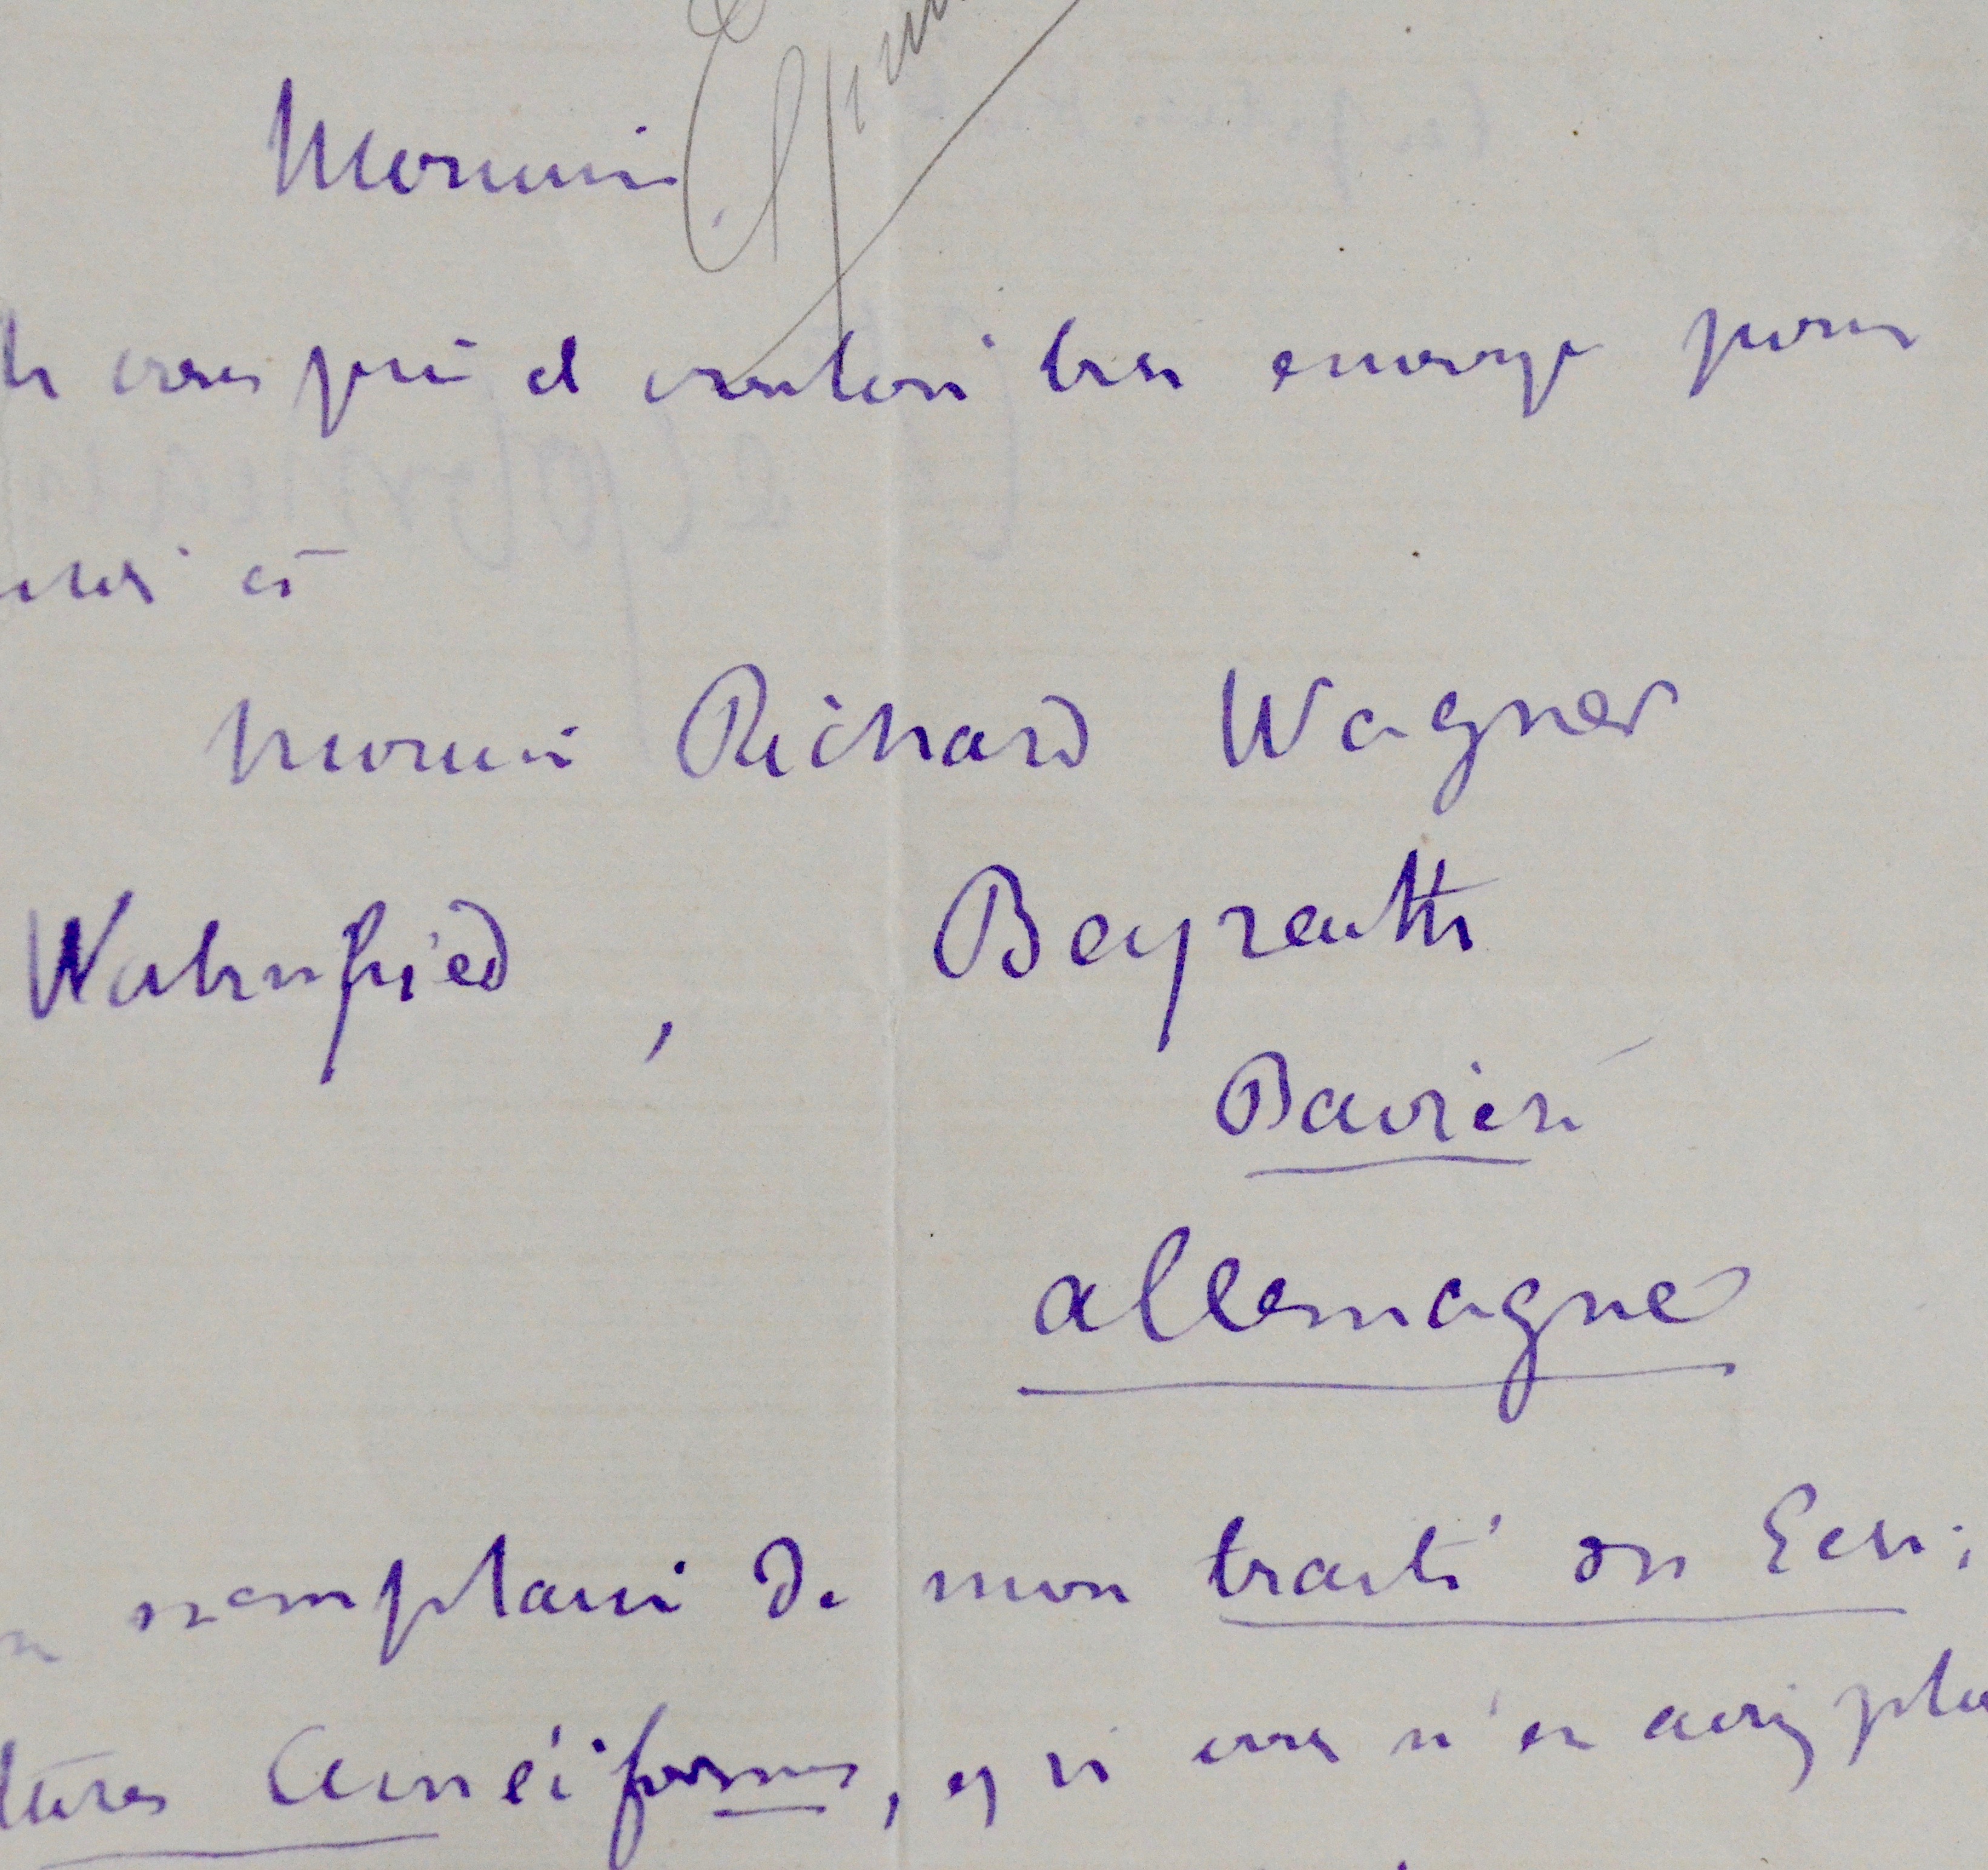 Monsieur
Je vous prie de vouloir bien envoyer pour
moi à
Monsieur Richard Wagner
Wahnfried, Beyreuth
Bavière
Allemagne
un exemplaire de mon traité des Écri-
tures Cunéiformes, et si vous n'en aviez plus